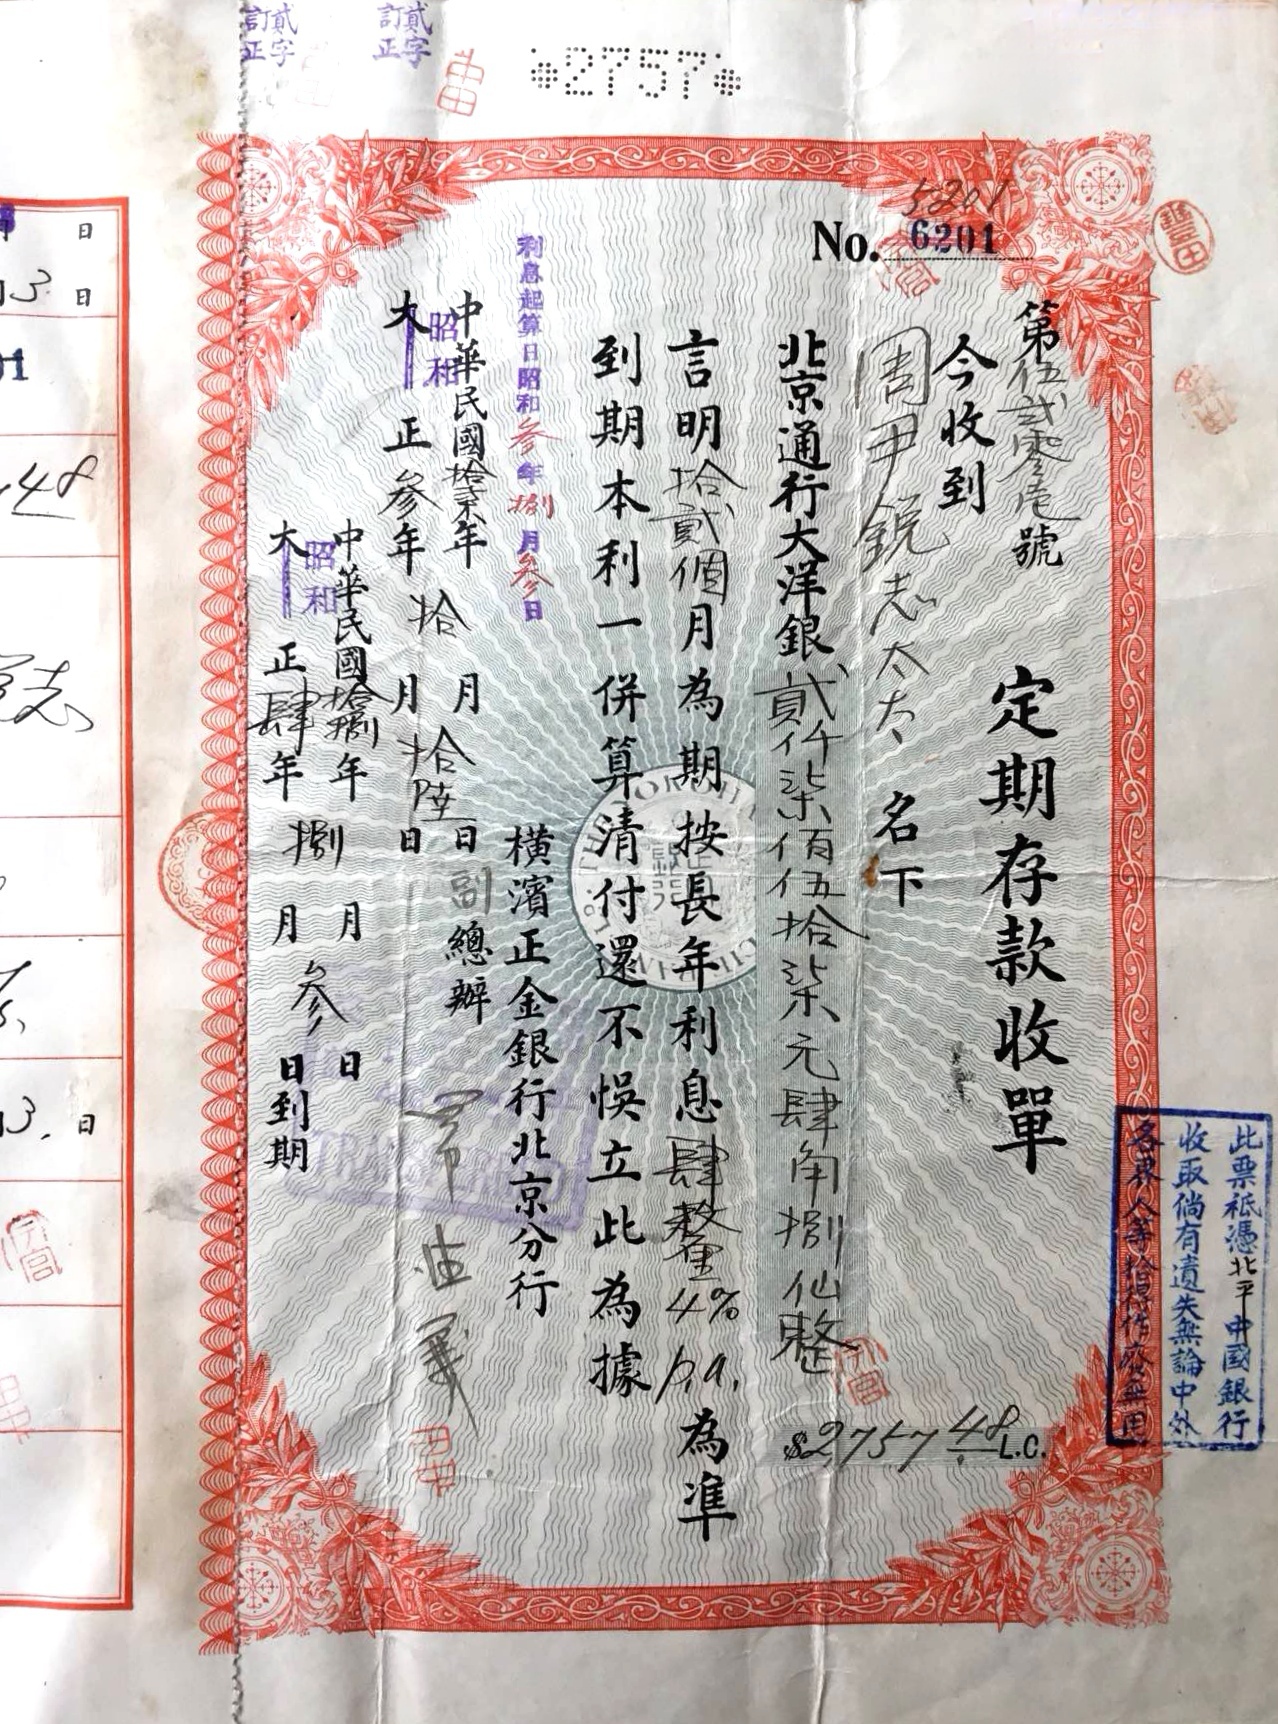 訂正貳字
訂正貳字
2757
5201
No. 6201
第伍貳零壱號
定期存款收單
今收到
周尹銳志太太 名下
北京通行大洋銀貳仟柒佰伍拾柒元肆角捌仙整
$2,757.48 L.C.
言明拾貳個月為期按長年利息肆釐4% p.a.為準
到期本利一併算清付還不悞立此為據
橫濱正金銀行北京分行
副總辦
利息起算日昭和参年捌月参日
中華民國拾柒年拾月拾陸日
大正昭和参年
月 日
中華民國拾捌年捌月参日
大正昭和肆年
月 日到期
此票祇憑北平中國銀行
收取倘有遺失無論中外
各界人等拾得作廢無用
TRANSFERRED
豐田
日
3日
01
.48
志
3.日